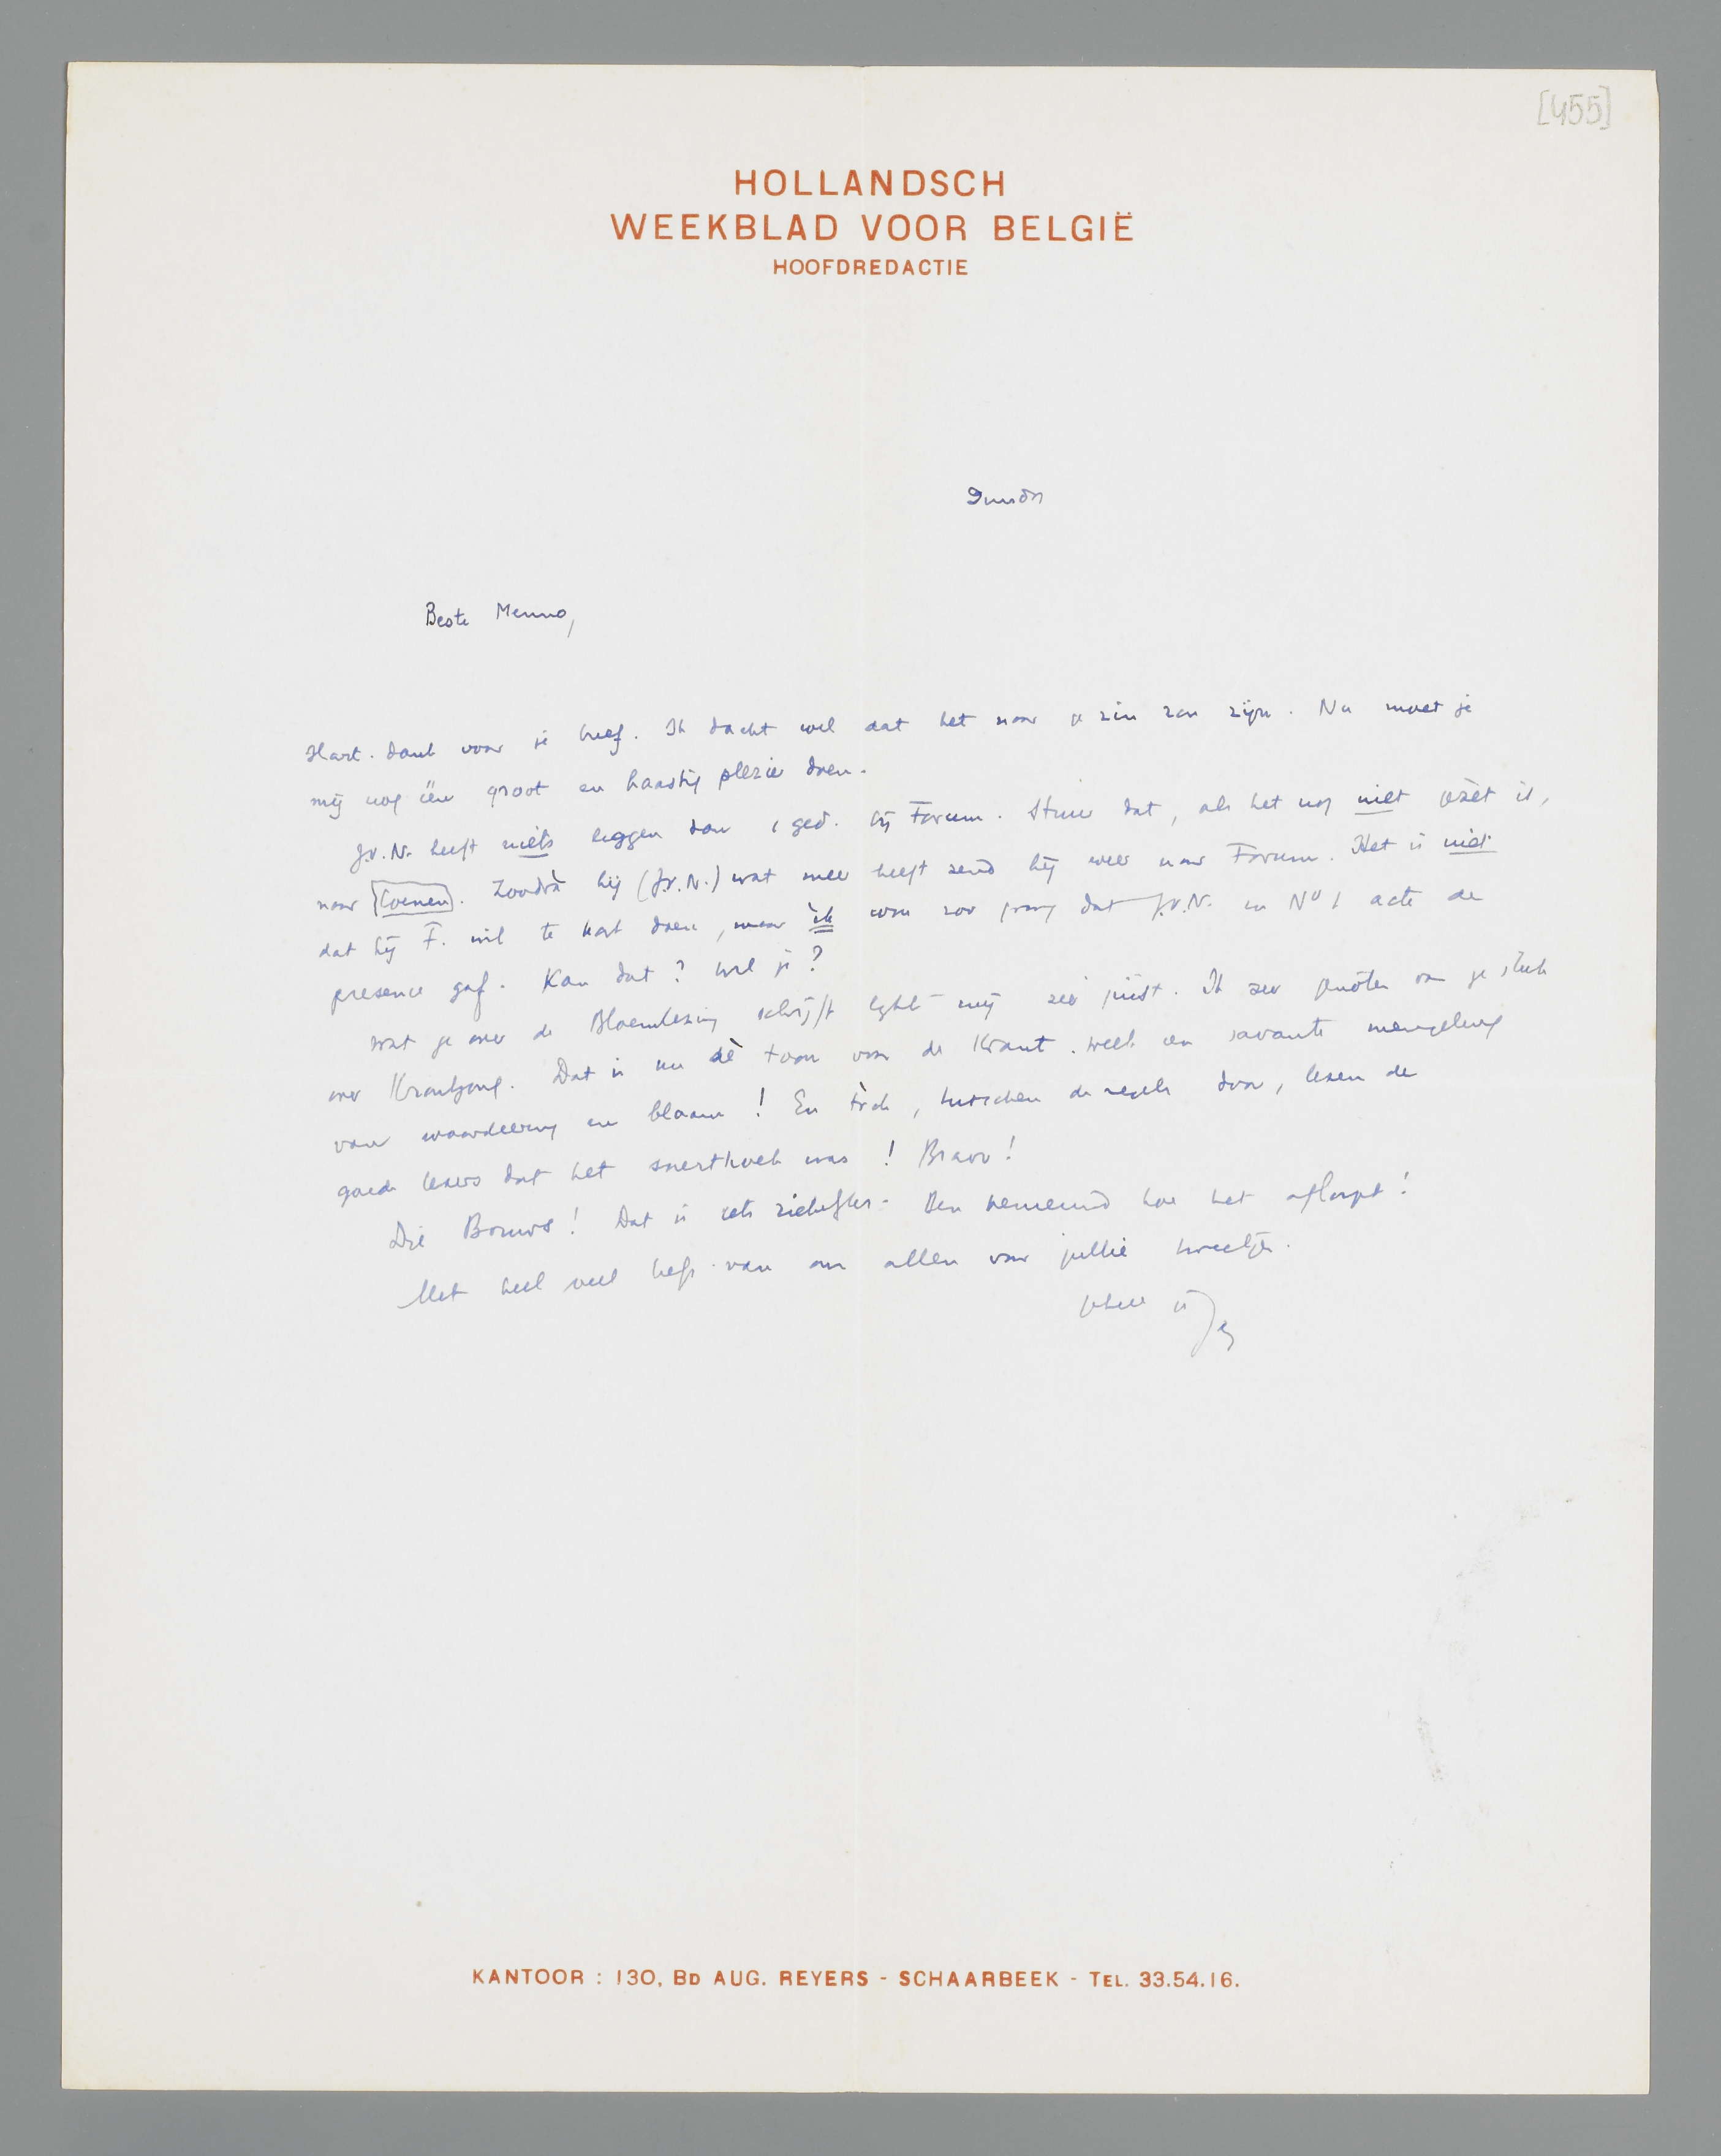 [455]
HOLLANDSCH
WEEKBLAD VOOR BELGIË
HOOFDREDACTIE
Beste Menno,
Hart. dank voor je brief. Ik dacht wel dat het naar je zin zou zijn. Nu moet je
mij nog één groot en haastig plezier doen.
J.v.N. heeft niets liggen dan 1 ged. bij Forum. Stuur dat, als het nog niet gezèt is,
naar Coenen. Zoodrà hij (J.v.N.) wat meer heeft zend hij weer naar Forum. Het is niet
dat hij F. wil te kort doen, maar ik wou zoo graag dat J.v.N. in No 1 acte de
presence gaf. Kan dat? Wil je?
Wat je over de Bloemlezing schrijft lijkt mij zéér juist. Ik zeer genóten van je stuk
over Krontjong. Dat is nu dè toon voor de Krant. Welk een savante mengeling
van waardeering en blaam! En tòch, tusschen de regels door, lezen de
goede lezers dat het snertboek was! Bravo!
Die Bouws! Dat is iets ziekelijks. Ben benieuwd hoe het afloopt!
Met heel veel liefs van ons allen voor jullie tweetjes.
geheel je
KANTOOR : 130, BD AUG. REYERS - SCHAARBEEK - TEL. 33.54.16.